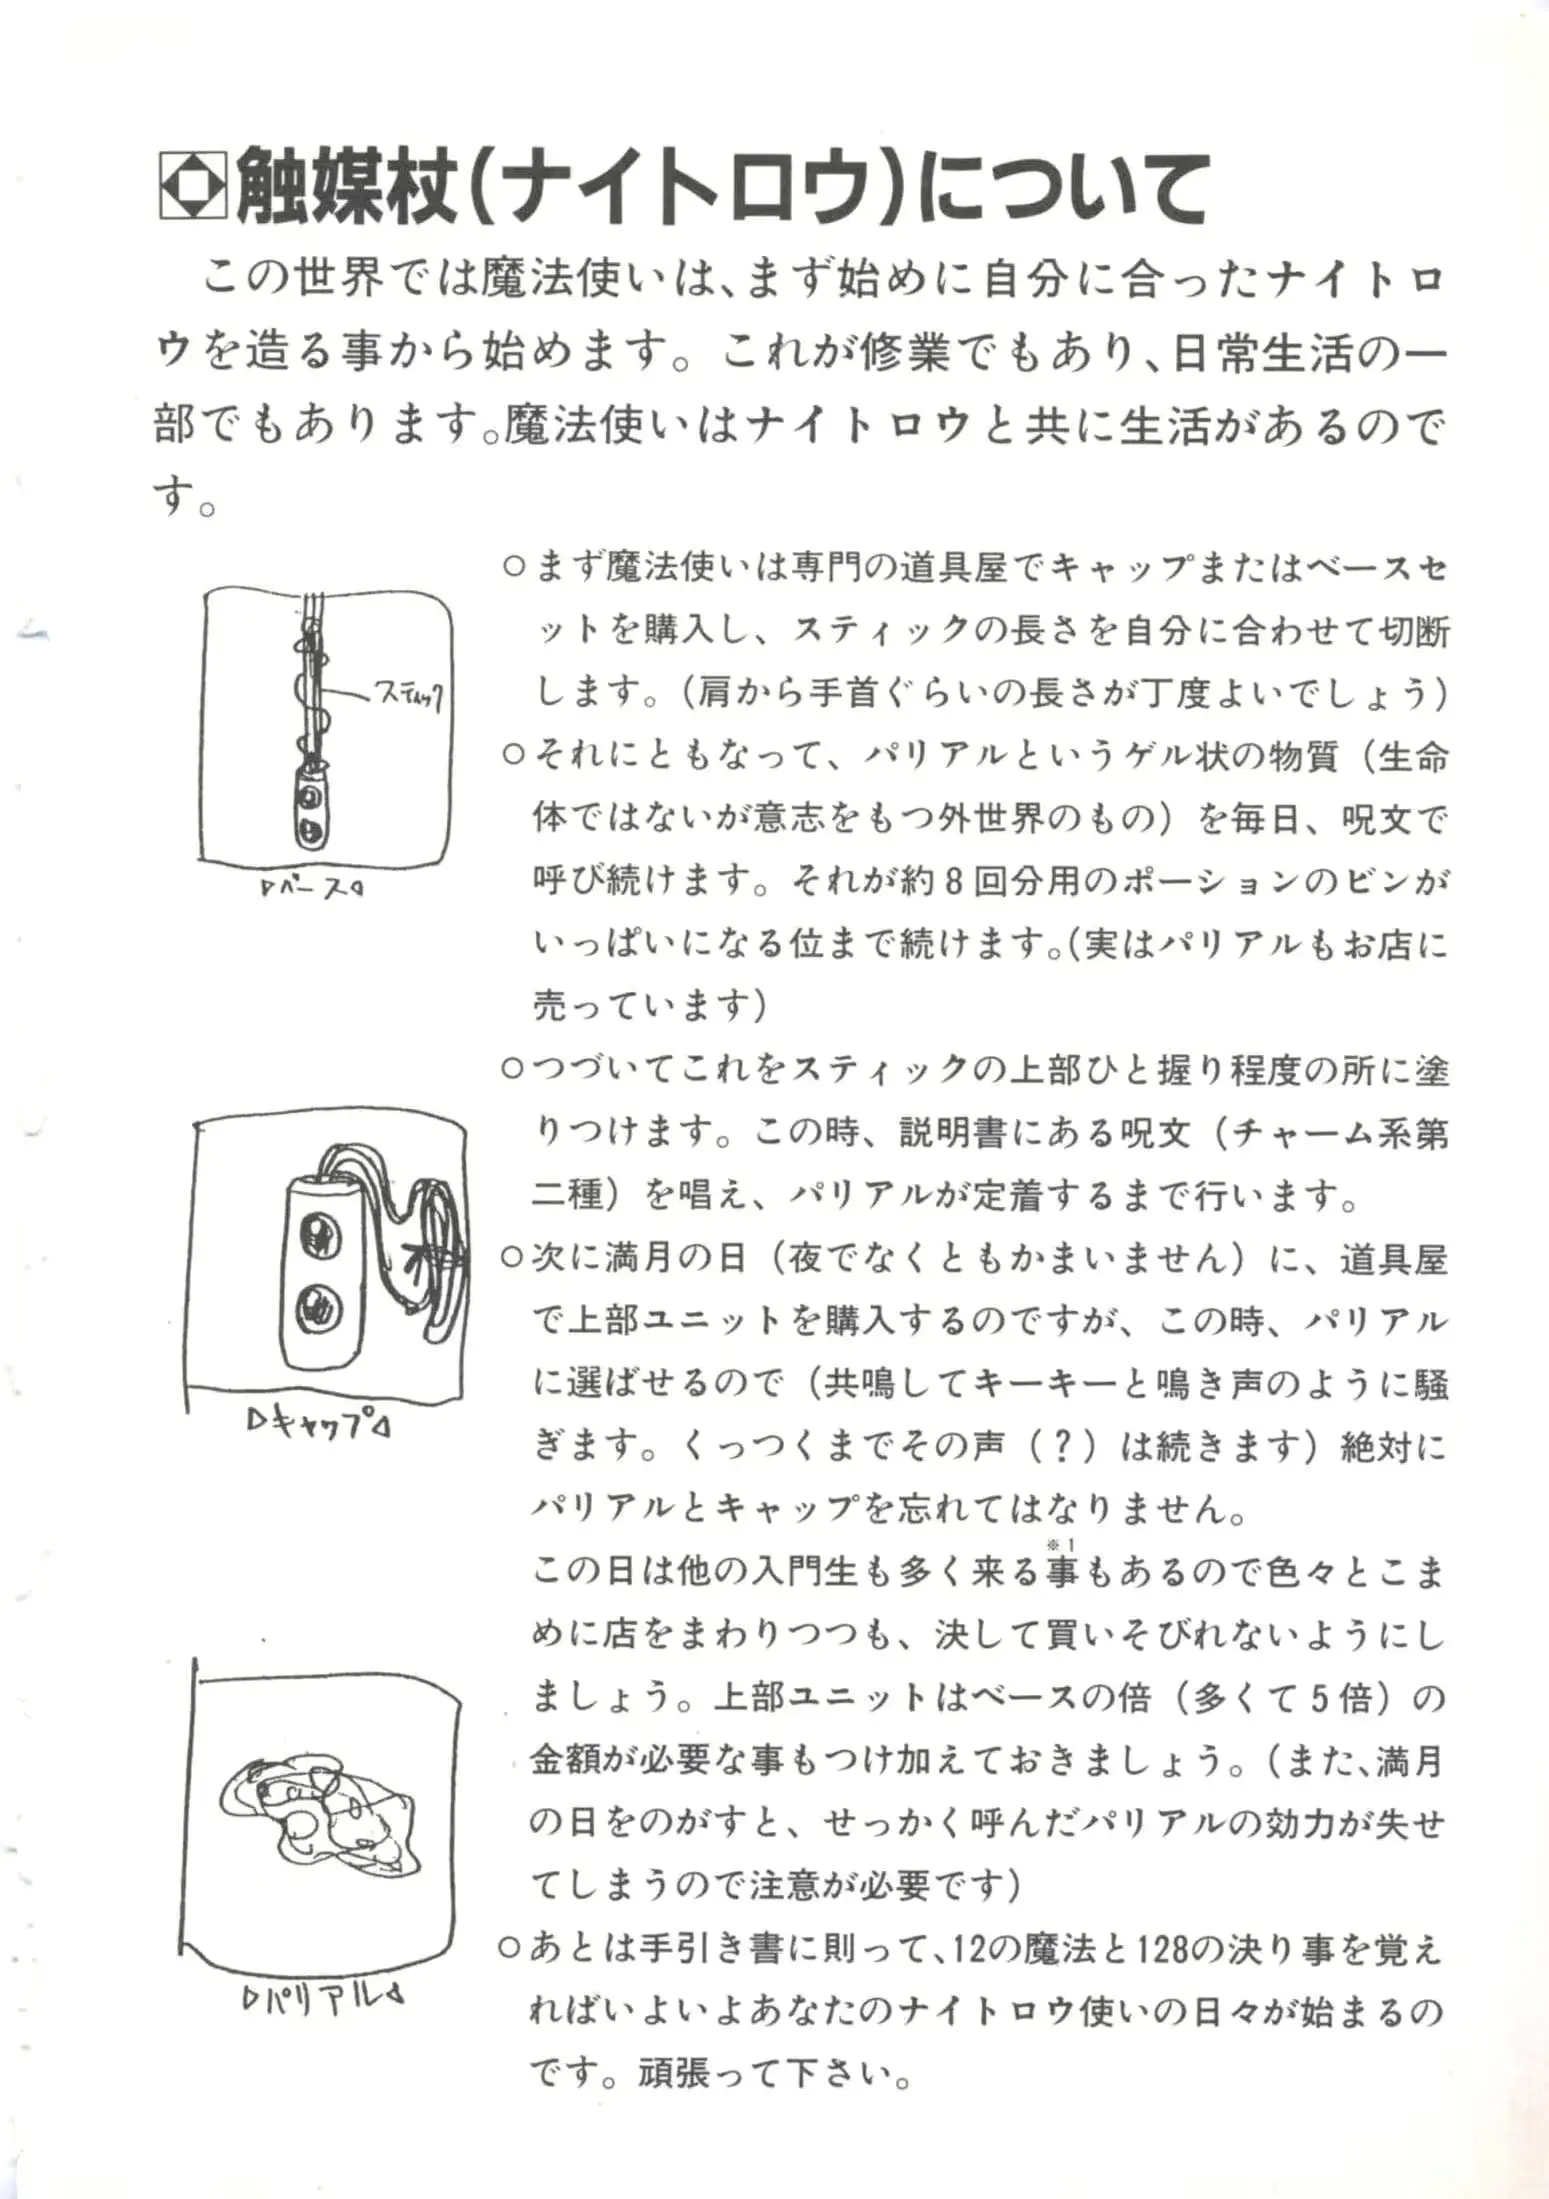 触媒杖(ナイトロウ)について
この世界では魔法使いは、まず始めに自分に合ったナイトロ
ウを造る事から始めます。これが修業でもあり、日常生活の一
部でもあります。魔法使いはナイトロウと共に生活があるので
す。
○まず魔法使いは専門の道具屋でキャップまたはベースセ
ットを購入し、スティックの長さを自分に合わせて切断
します。(肩から手首ぐらいの長さが丁度よいでしょう)
○それにともなって、パリアルというゲル状の物質(生命
体ではないが意志をもつ外世界のもの)を毎日、呪文で
呼び続けます。それが約8回分用のポーションのビンが
いっぱいになる位まで続けます。(実はパリアルもお店に
売っています)
○つづいてこれをスティックの上部ひと握り程度の所に塗
りつけます。この時、説明書にある呪文(チャーム系第
二種)を唱え、パリアルが定着するまで行います。
○次に満月の日(夜でなくともかまいません)に、道具屋
で上部ユニットを購入するのですが、この時、パリアル
に選ばせるので(共鳴してキーキーと鳴き声のように騒
ぎます。くっつくまでその声(?)は続きます)絶対に
パリアルとキャップを忘れてはなりません。
※1
この日は他の入門生も多く来る事もあるので色々とこま
めに店をまわりつつも、決して買いそびれないようにし
ましょう。上部ユニットはベースの倍(多くて5倍)の
金額が必要な事もつけ加えておきましょう。(また、満月
の日をのがすと、せっかく呼んだパリアルの効力が失せ
てしまうので注意が必要です)
○あとは手引き書に則って、12の魔法と128の決り事を覚え
ればいよいよあなたのナイトロウ使いの日々が始まるの
です。頑張って下さい。
スティック
▷ベース◁
▷キャップ◁
▷パリアル◁